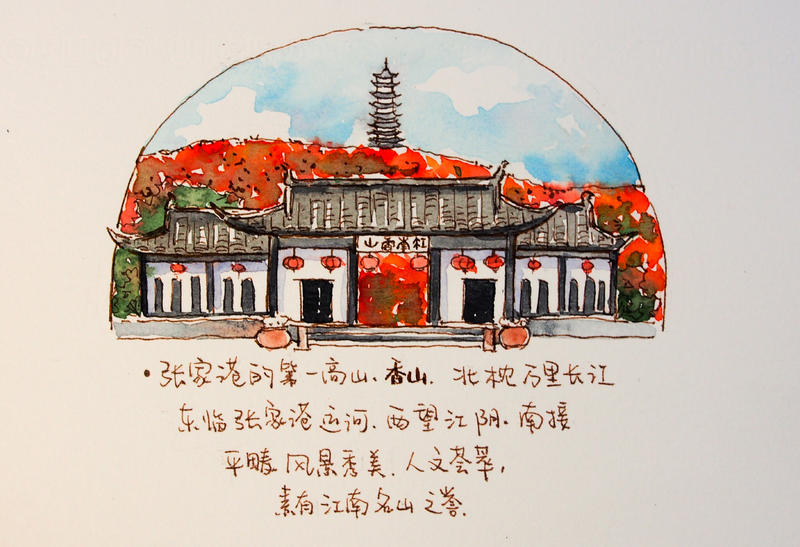 • 张家港的第一高山、香山. 北枕万里长江
东临张家港运河、西望江阴. 南接
平畴. 风景秀美. 人文荟萃,
素有江南名山之誉.